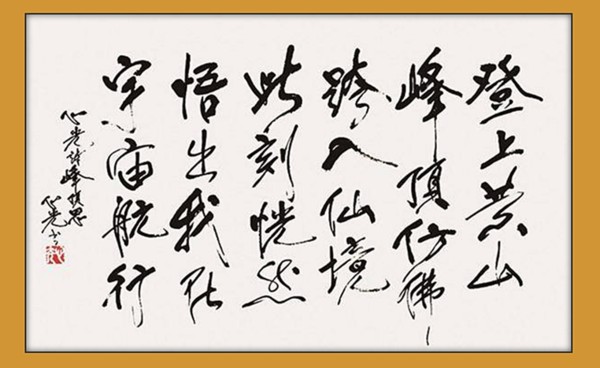 登上黄山
峰顶仿佛
跨入仙境
此刻恍然
悟出我在
宇宙航行
心光诗峰顶思
心光书